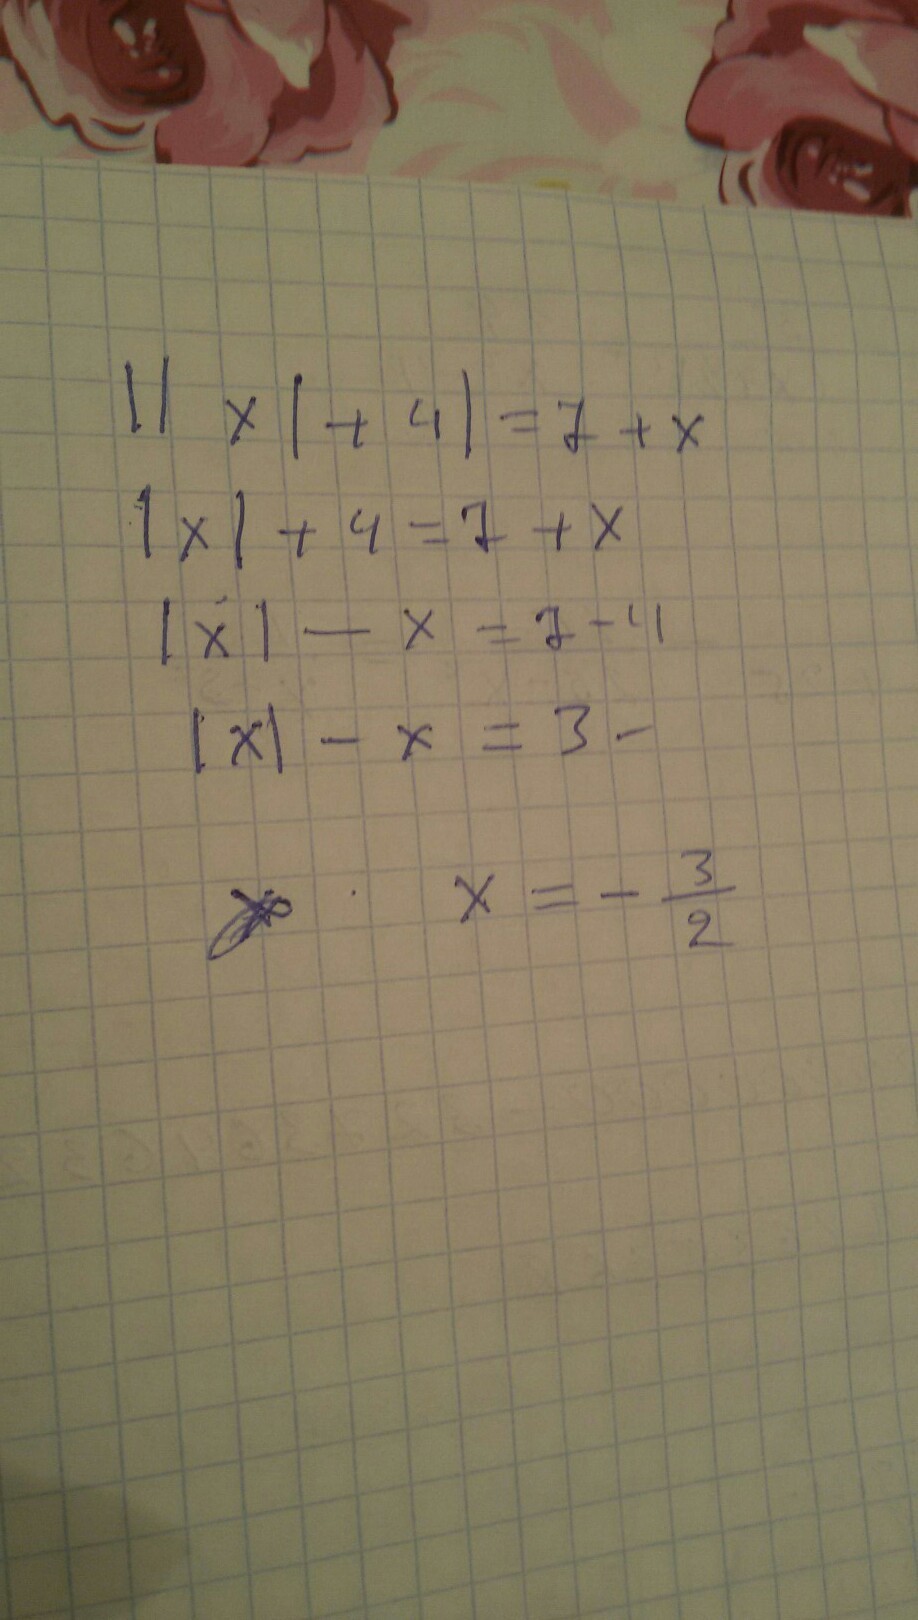 || x | + 4 | = 7 + x
| x | + 4 = 7 + x
| x | - x = 7 - 4
| x | - x = 3 -
x = - 3/2